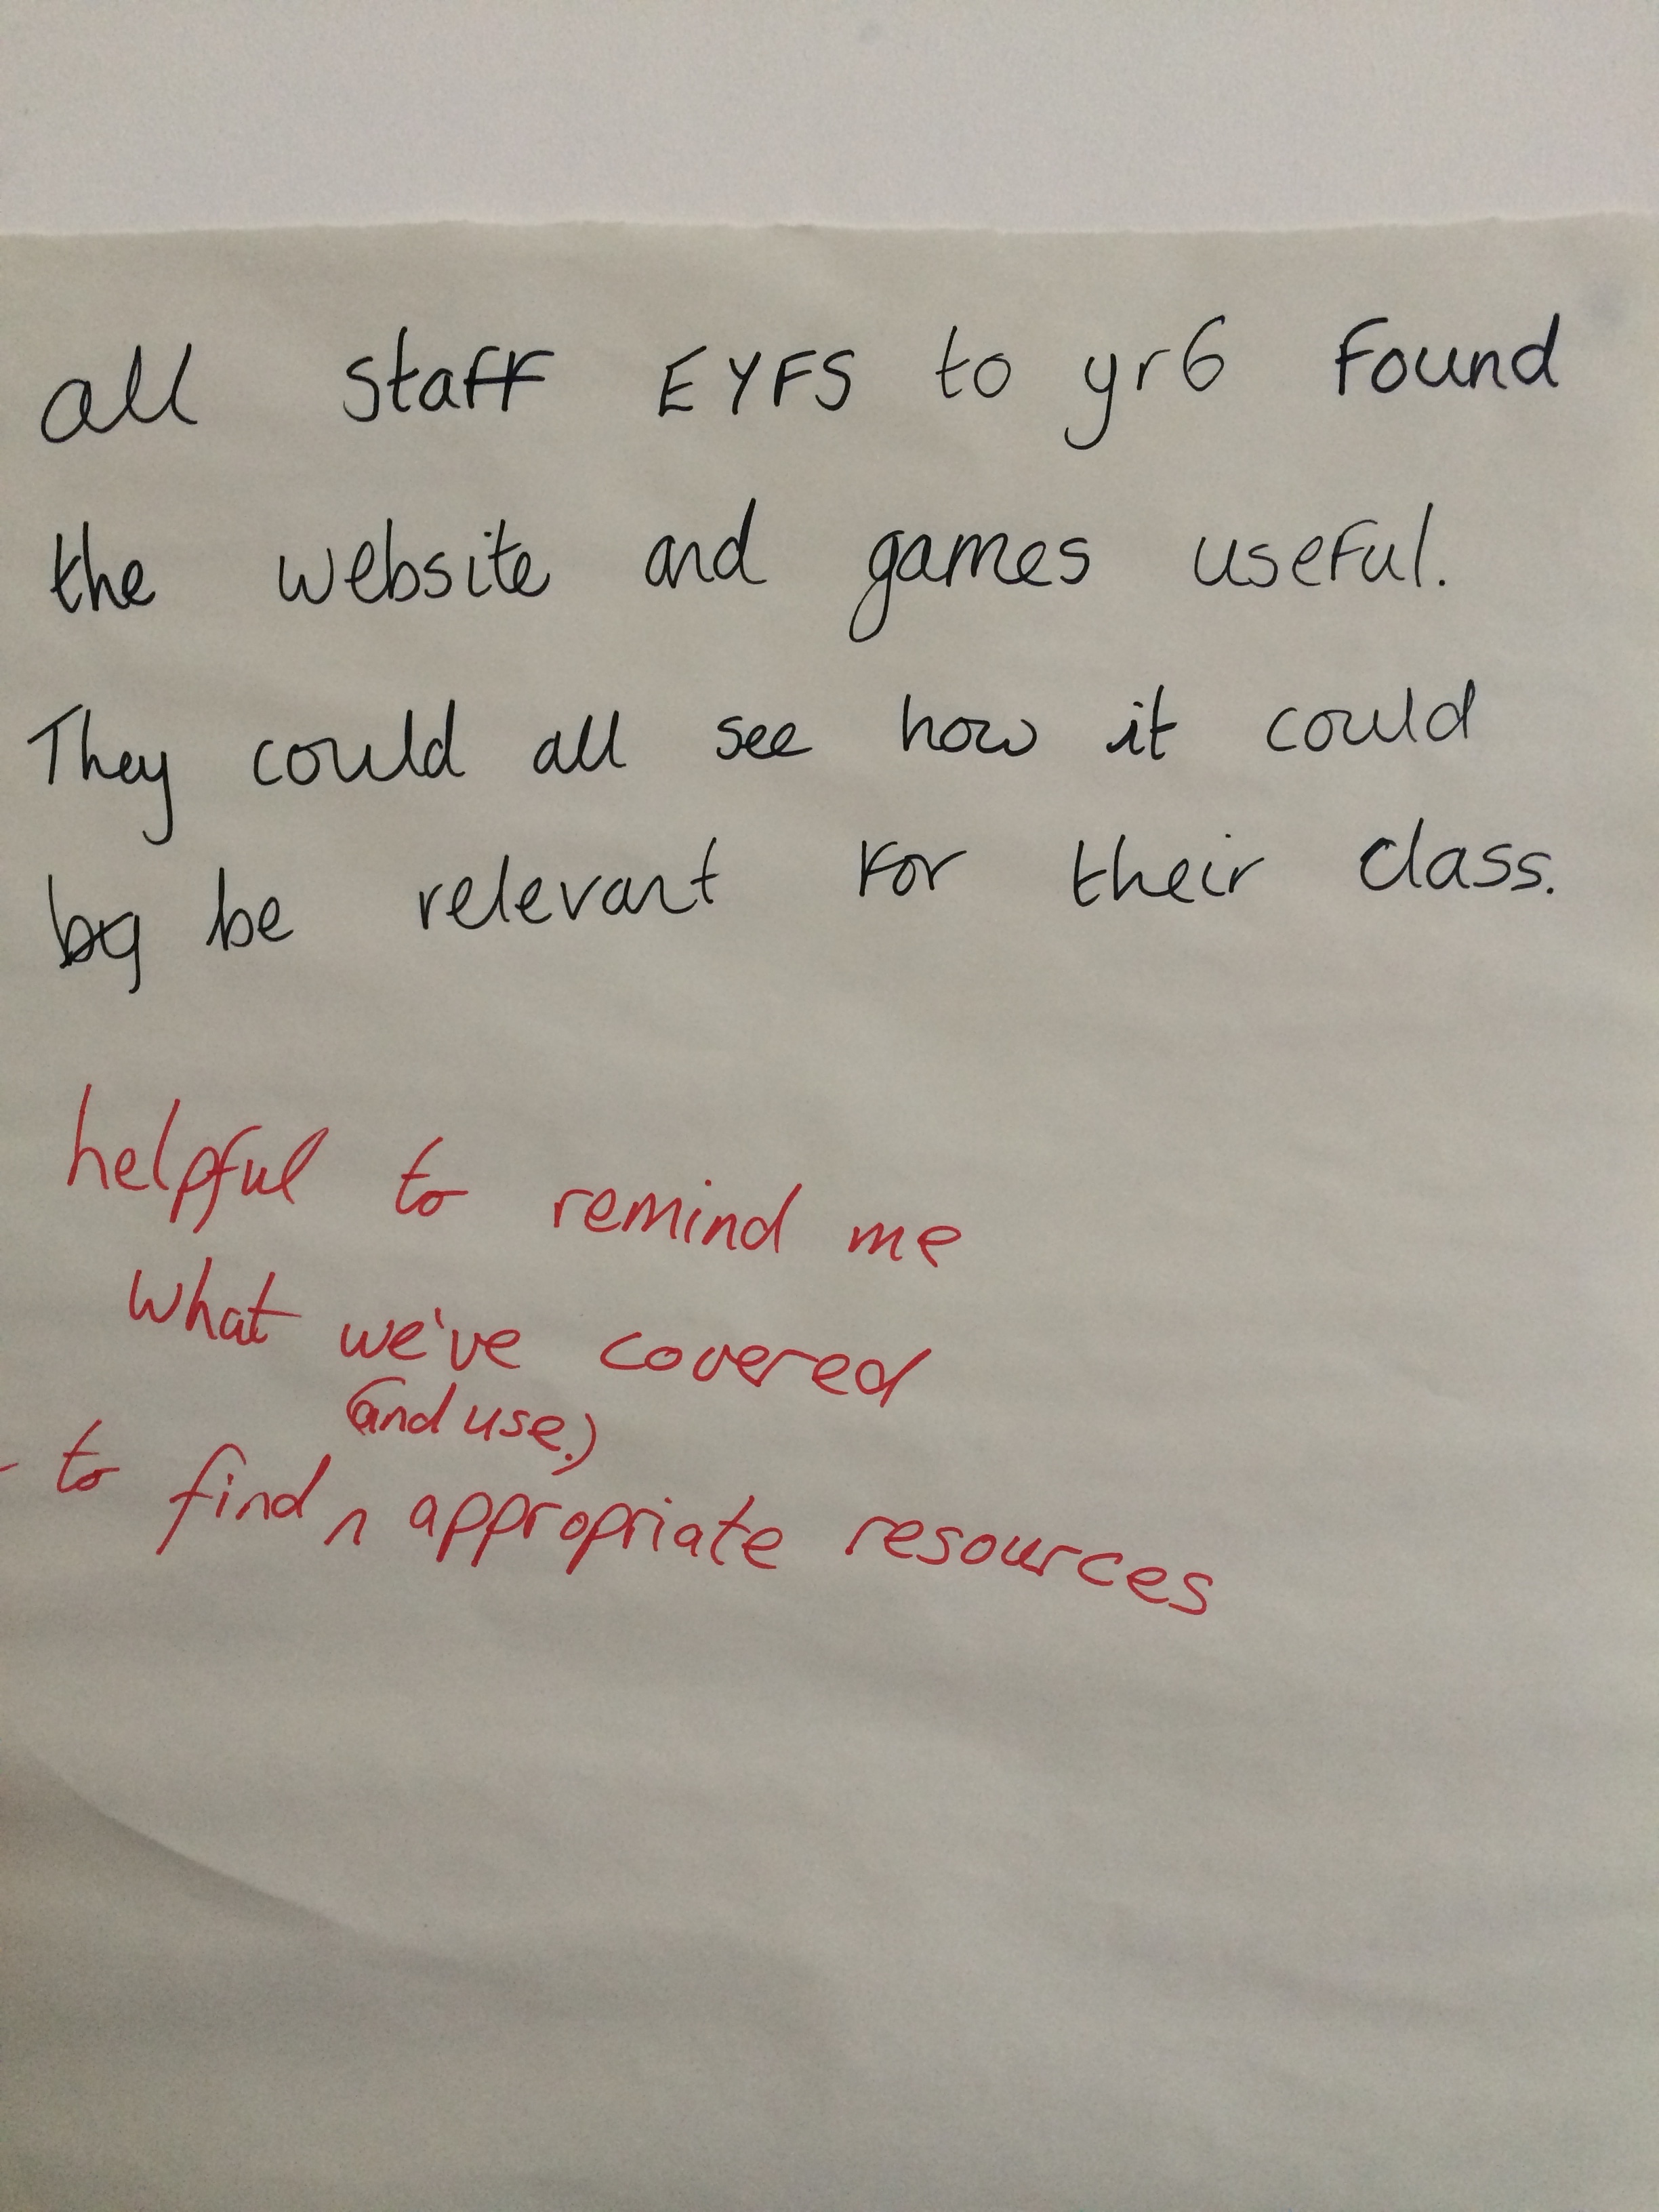 all staff EYFS to yr6 found
the website and games useful.
They could all see how it could
be relevant for their class.
helpful to remind me
what we've covered
(and use.)
- to find ^ appropriate resources